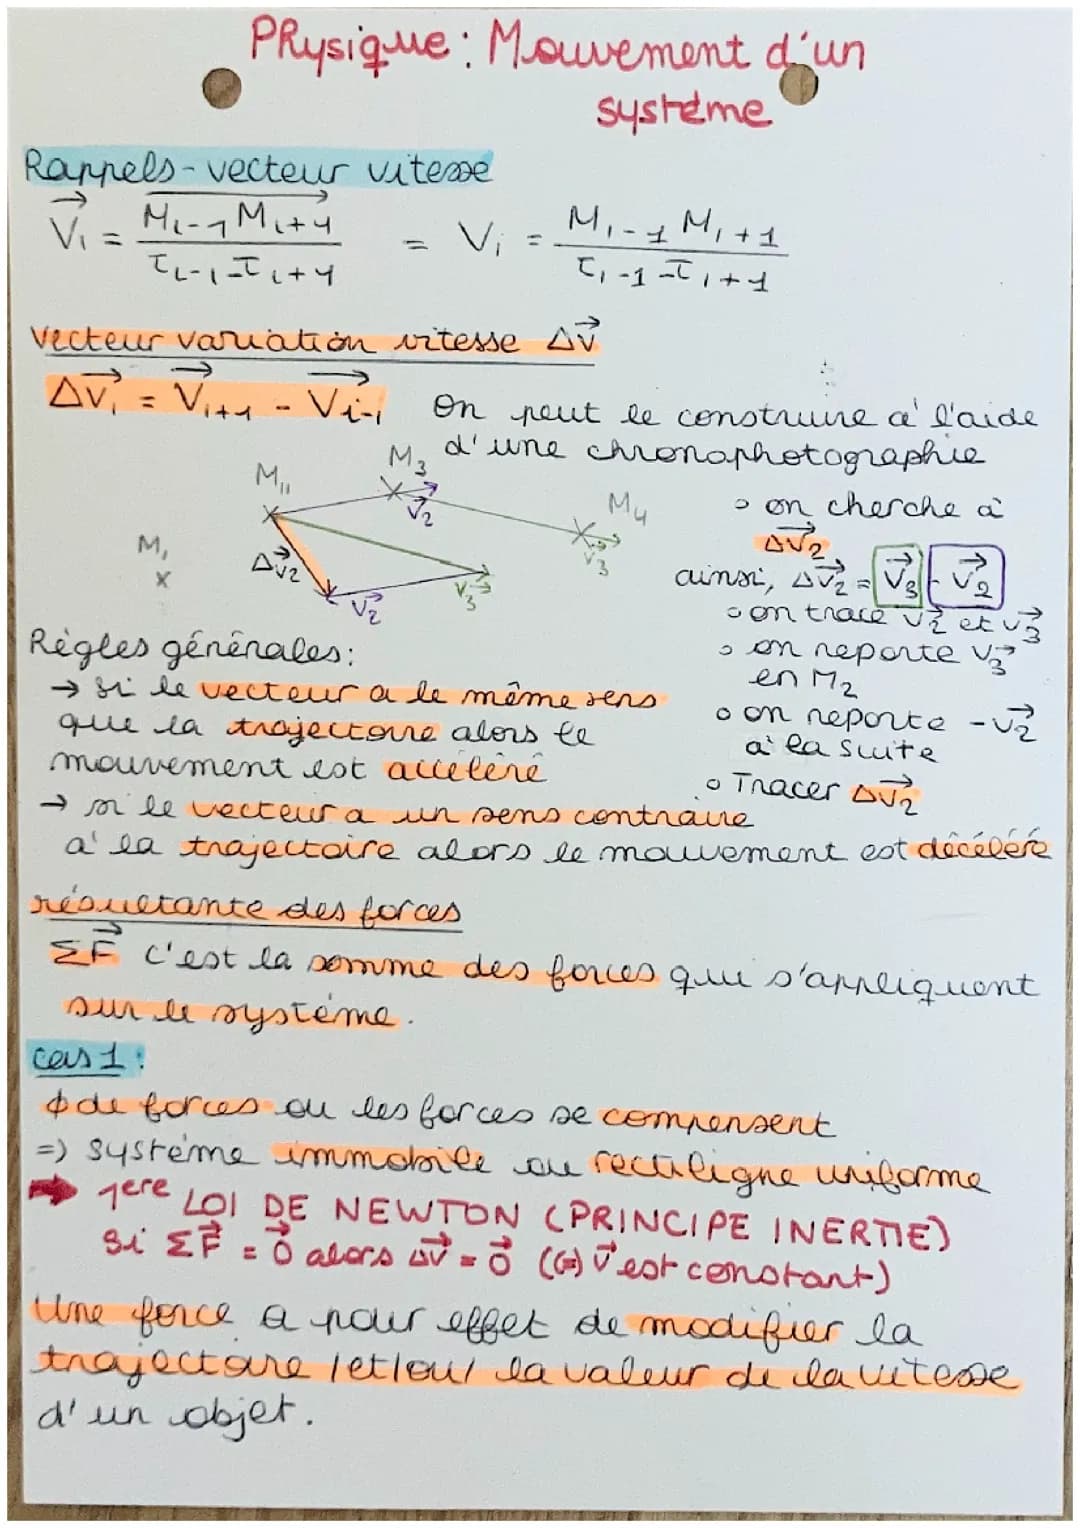 PHysique : Mouvement d'un
système
Rappels - vecteur vitesse
V⃗i = Mi-1 Mi+1 / τi-1 - τi+1 = Vi = Mi-1 Mi+1 / τi-1 - τi+1
Vecteur variation vitesse ΔV⃗
ΔV⃗i = V⃗i+1 - V⃗i-1
On peut le construire à l'aide
d'une chronophotographie
M₃
M₁₁
M₄
M₁
V⃗₂
V⃗₃
ΔV⃗₂
V⃗₂
V⃗₃
on cherche à
ΔV⃗₂
ainsi, ΔV⃗₂ = V⃗₃ - V⃗₂
on trace V⃗₂ et V⃗₃
on reporte V⃗₃
en M₂
on reporte -V⃗₂
à la suite
Tracer ΔV⃗₂
Règles générales :
→ si le vecteur a le même sens
que la trajectoire alors le
mouvement est accéléré
→ si le vecteur a un sens contraire
à la trajectoire alors le mouvement est décéléré
résultante des forces
ΣF⃗ c'est la somme des forces qui s'appliquent
sur le système.
cas 1 :
ϕ de forces ou les forces se compensent
=> système immobile ou rectiligne uniforme
➡ 1ere LOI DE NEWTON (PRINCIPE INERTIE)
Si ΣF⃗ = 0⃗ alors ΔV⃗ = 0⃗ (<=> V⃗ est constant)
Une force a pour effet de modifier la
trajectoire /et/ou/ la valeur de la vitesse
d'un objet.